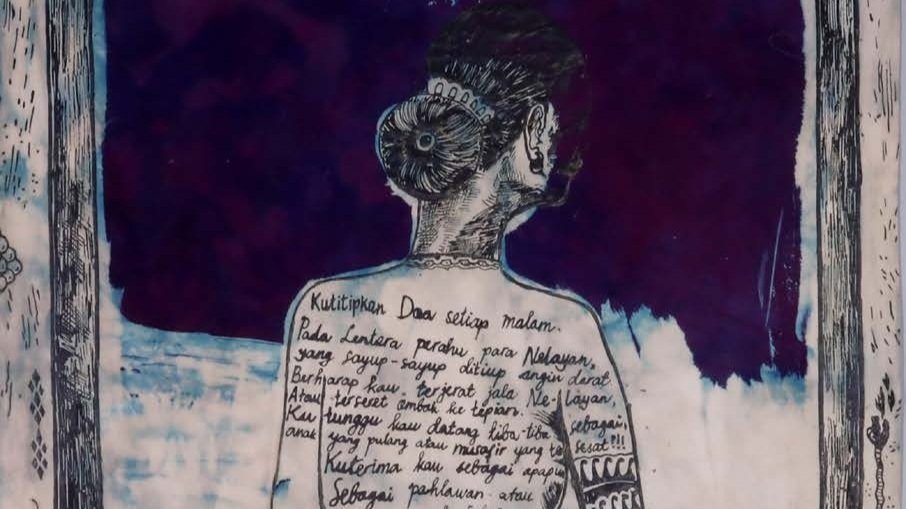 Kutitipkan Doa setiap malam.
Pada Lentera perahu para Nelayan,
yang sayup-sayup ditiup angin darat
Berharap kau terjerat jala Ne-layan,
Atau terseret ombak ke tepian.
Ku tunggu kau datang tiba-tiba sebagai,
anak yang pulang atau musafir yang sesat!!!
Kuterima kau sebagai apapun
Sebagai pahlawan atau